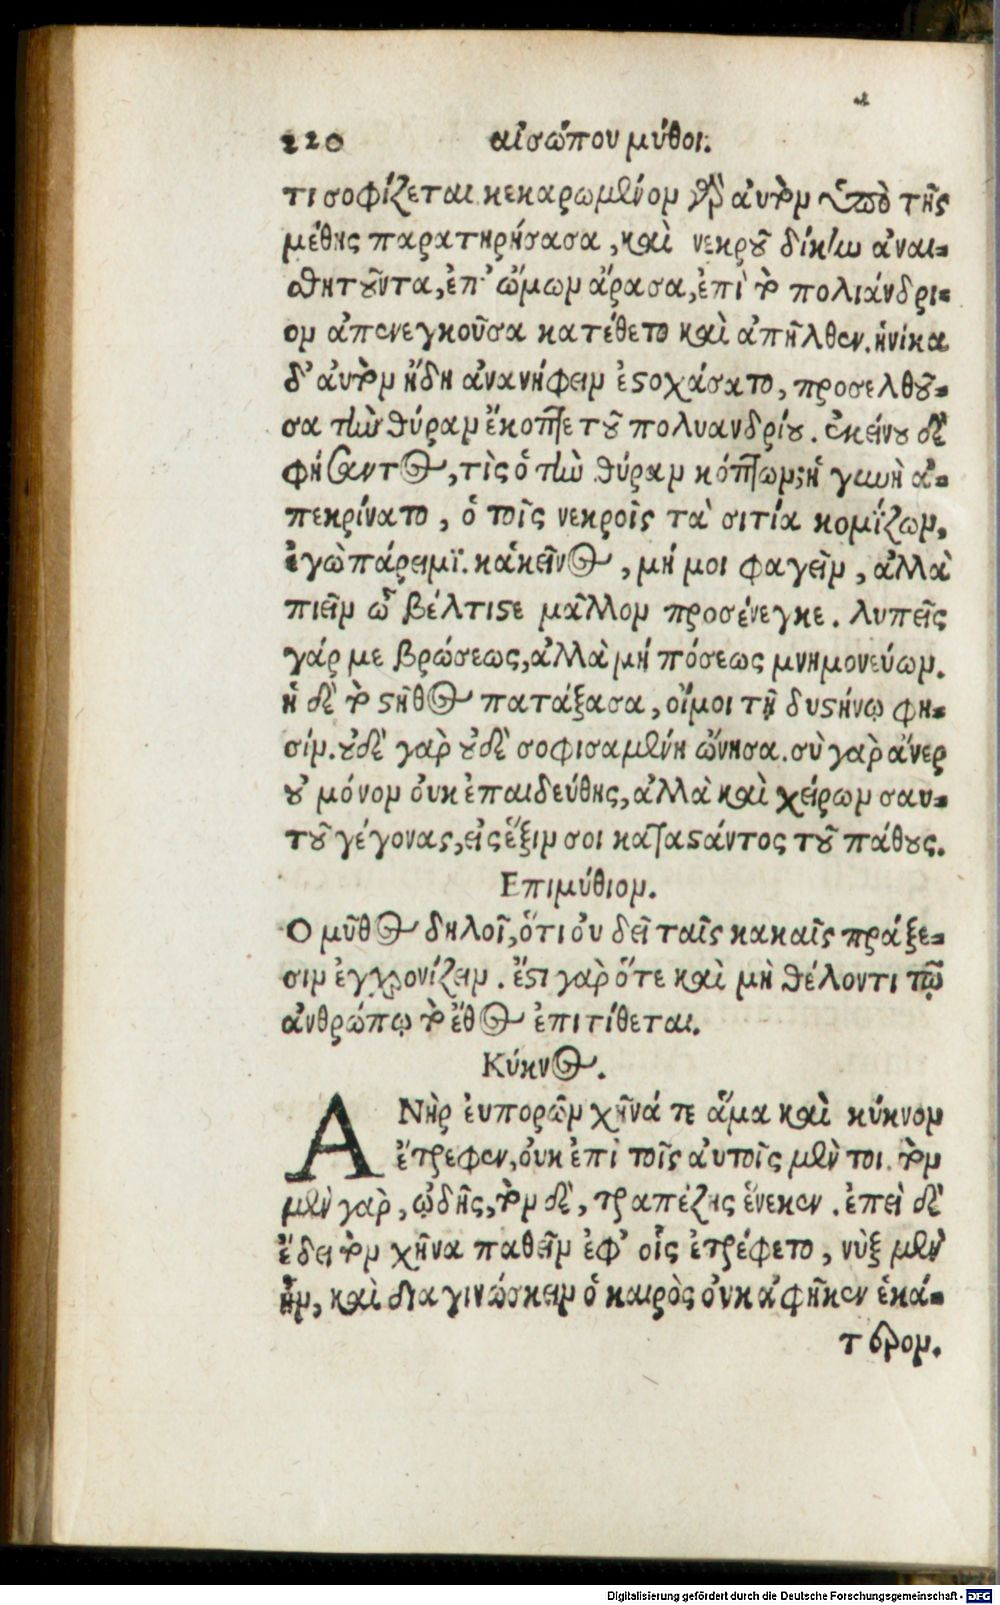 220 αἰσώπου μύθοι.
τι σοφίζεται. κεκαρωμένον γὰρ ἀυτὸν ὑπὸ τῆς
μέθης παρατηρήσασα, καὶ νεκροῦ δίκην ἀναι-
σθητοῦντα, ἐπ' ὤμων ἄρασα, ἐπὶ τὸ πολιάνδρι-
ον ἀπενεγκοῦσα κατέθετο καὶ ἀπῆλθεν. ἡνίκα
δ' ἀυτὸν ἤδη ἀνανήφειν ἐστοχάσατο, προσελθοῦ-
σα τὴν θύραν ἔκοπτε τοῦ πολυανδρίου. ἐκείνου δὲ
φήσαντος, τὶς ὁ τὴν θύραν κόπτων; ἡ γυνὴ ἀ-
πεκρίνατο, ὁ τοῖς νεκροῖς τὰ σιτία κομίζων,
ἐγὼ πάρειμι. κἀκεῖνος, μή μοι φαγεῖν, ἀλλὰ
πιεῖν ὦ βέλτιστε μᾶλλον προσένεγκε. λυπεῖς
γάρ με βρώσεως, ἀλλὰ μή πόσεως μνημονεύων.
ἡ δὲ τὸ στῆθος πατάξασα, οἴμοι τῇ δυστήνῳ φη-
σίν. οὐδὲ γὰρ οὐδὲ σοφισαμένη ὤνησα. σὺ γὰρ ἄνερ
οὐ μόνον ὀυκ ἐπαιδεύθης, ἀλλὰ καὶ χείρων σαυ-
τοῦ γέγονας, εἰς ἕξιν σοι καταστάντος τοῦ πάθους.
Επιμύθιον.
Ο μῦθος δηλοῖ, ὅτι ὀυ δεῖ ταῖς κακαῖς πράξε-
σιν ἐγχρονίζειν. ἔστι γὰρ ὅτε καὶ μὴ θέλοντι τῷ
ἀνθρώπῳ τὸ ἔθος ἐπιτίθεται.
Κύκνος.
ΑΝὴρ ἐυπορῶν χῆνά τε ἅμα καὶ κύκνον
ἔτρεφεν, ὀυκ ἐπὶ τοῖς ἀυτοῖς μέν τοι. τὸν
μὲν γὰρ, ᾠδῆς, τὸν δὲ, τραπέζης ἕνεκεν. ἐπεὶ δὲ
ἔδει τὸν χῆνα παθεῖν ἐφ' οἷς ἐτρέφετο, νὺξ μὲν
ἦν, καὶ διαγινώσκειν ὁ καιρὸς ὀυκ ἀφῆκεν ἑκά-
τερον.
Digitalisierung gefördert durch die Deutsche Forschungsgemeinschaft - DFG